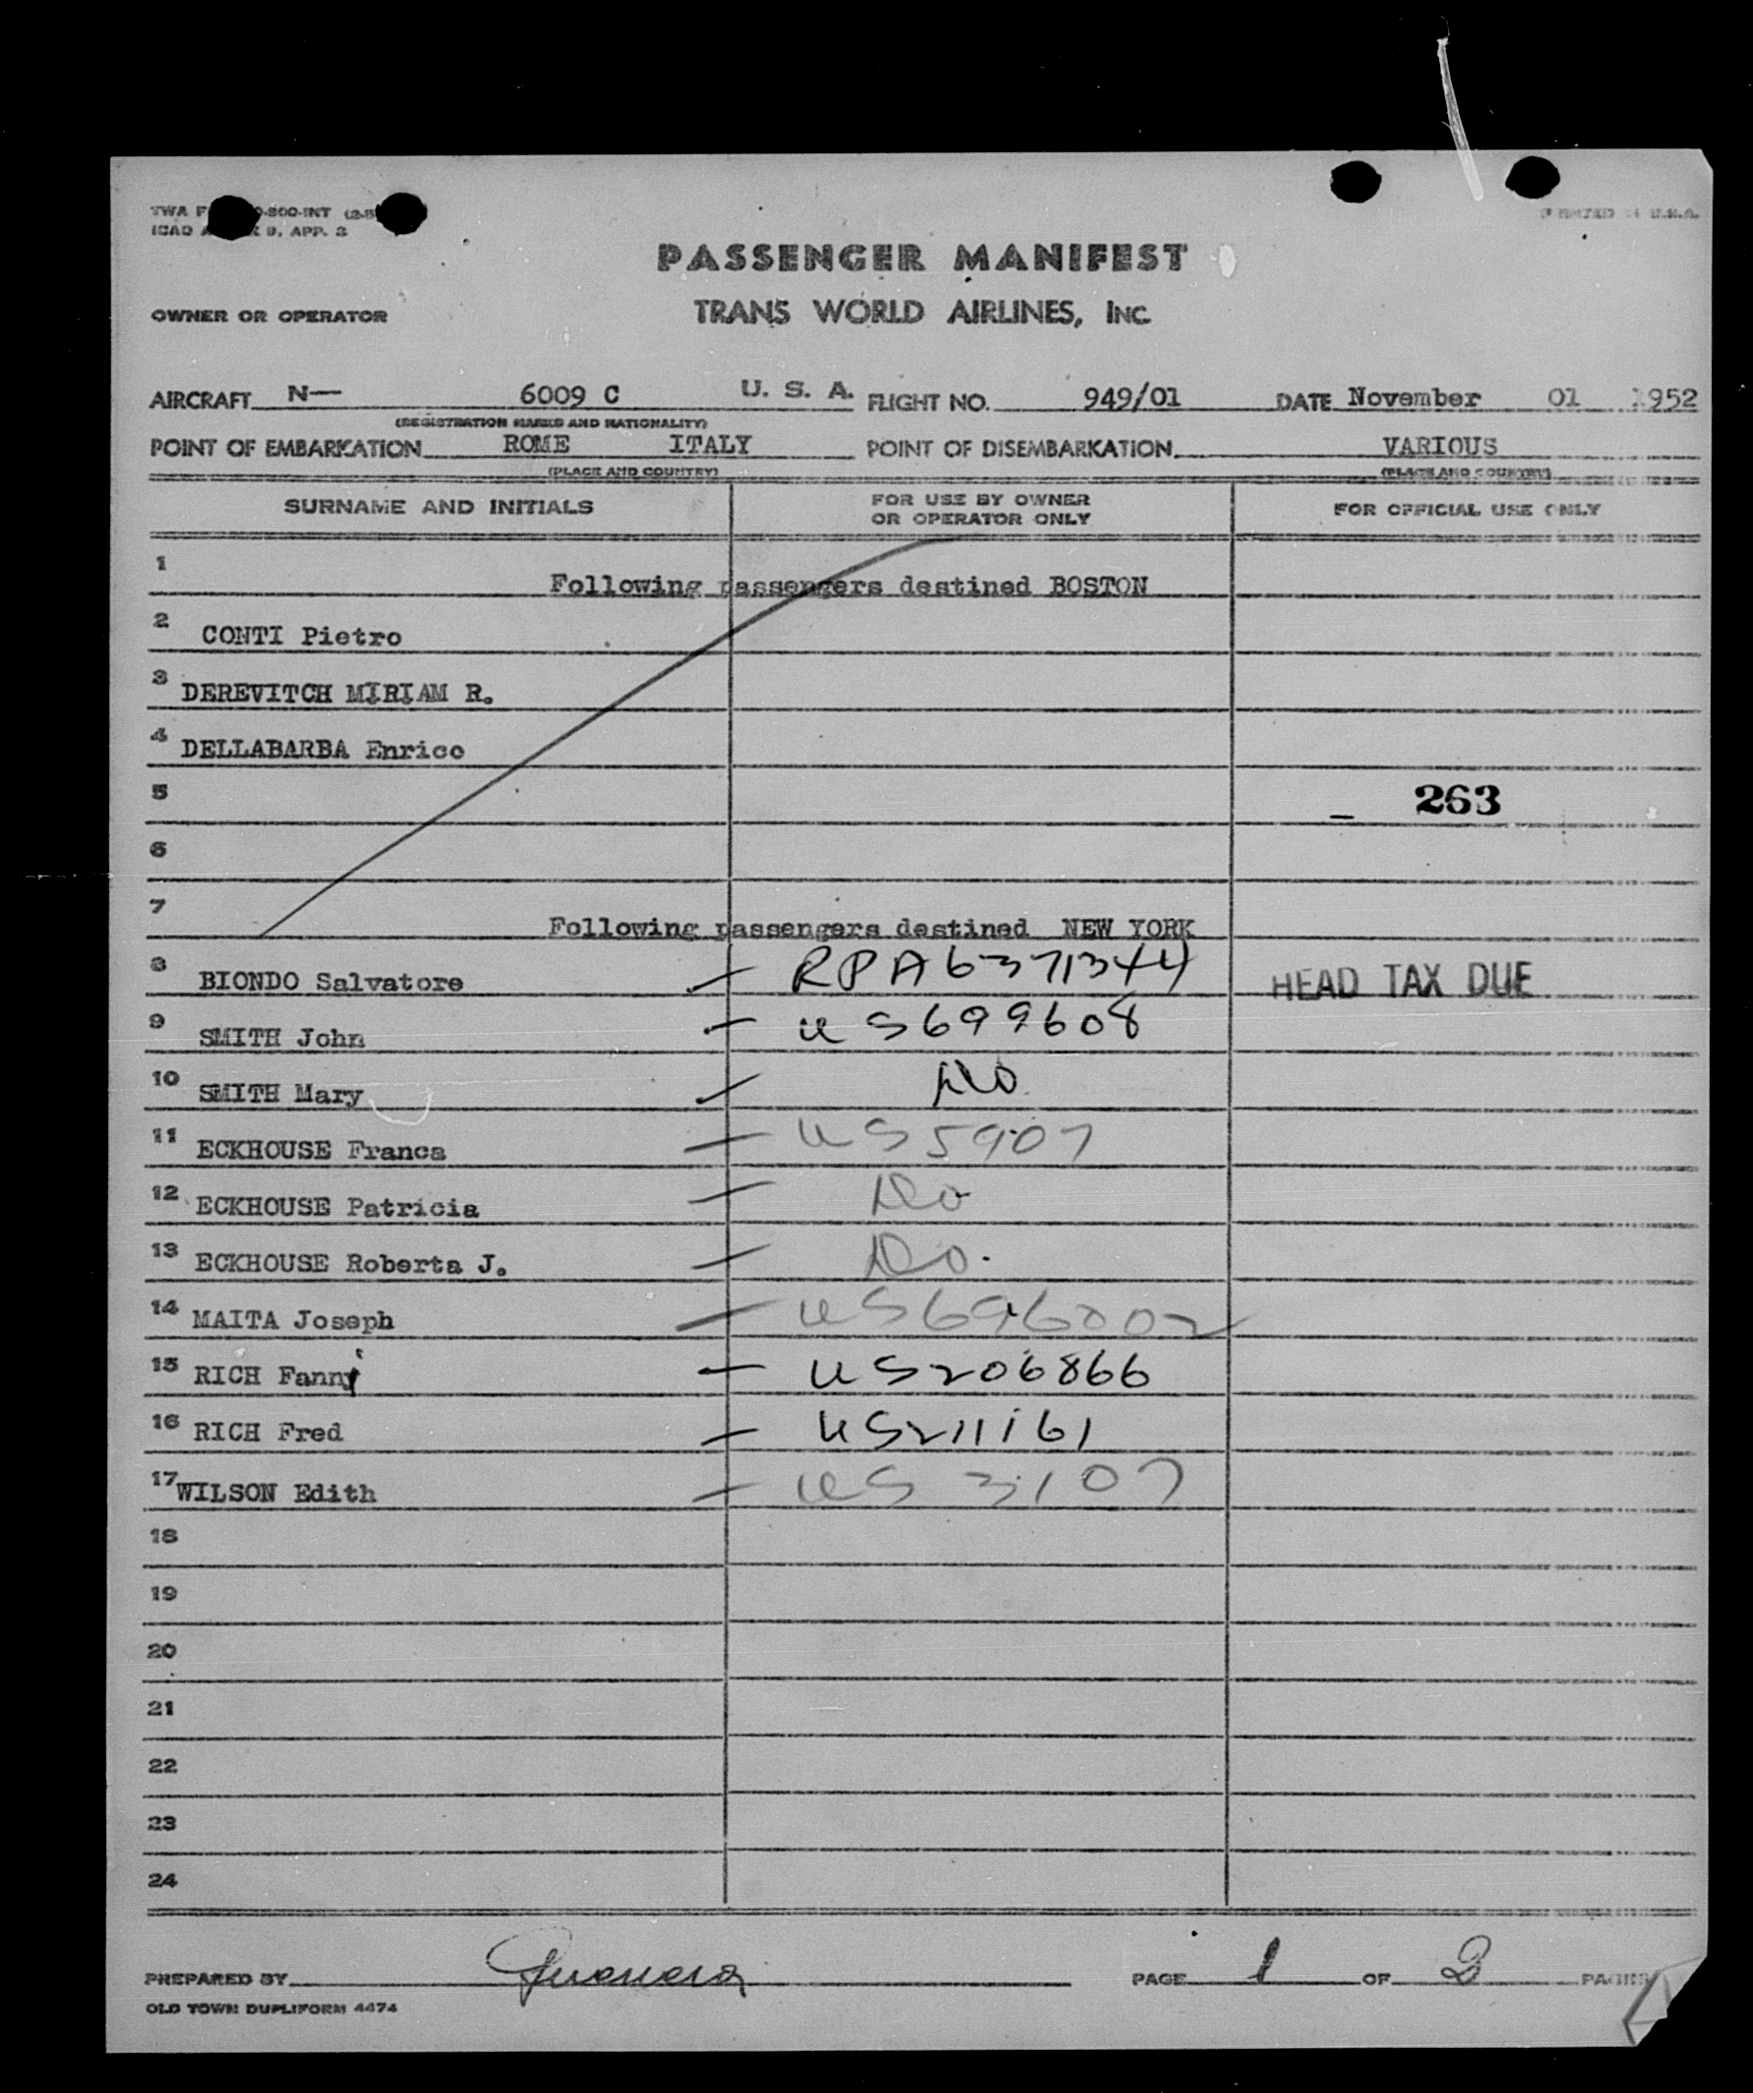 TWA F 0-800-INT (2-5
ICAO A X 9, APP. 2
PRINTED IN U.S.A.
PASSENGER MANIFEST
OWNER OR OPERATOR TRANS WORLD AIRLINES, INC
AIRCRAFT N— 6009 C U. S. A. FLIGHT NO. 949/01 DATE November 01 1952
(REGISTRATION MARKS AND NATIONALITY)
POINT OF EMBARKATION ROME ITALY POINT OF DISEMBARKATION VARIOUS
(PLACE AND COUNTRY) (PLACE AND COUNTRY)
SURNAME AND INITIALS FOR USE BY OWNER OR OPERATOR ONLY FOR OFFICIAL USE ONLY
1 Following passengers destined BOSTON
2 CONTI Pietro
3 DEREVITCH MIRIAM R.
4 DELLABARBA Enrico
5 263
6
7 Following passengers destined NEW YORK
8 BIONDO Salvatore — RPA6371344 HEAD TAX DUE
9 SMITH John — US699608
10 SMITH Mary — Do
11 ECKHOUSE Franca — US5907
12 ECKHOUSE Patricia — Do
13 ECKHOUSE Roberta J. — Do.
14 MAITA Joseph — US696002
15 RICH Fanny — US206866
16 RICH Fred — US211161
17 WILSON Edith — US 3107
18
19
20
21
22
23
24
PREPARED BY PAGE 1 OF 2 PAGES
OLD TOWN DUPLIFORM 4474